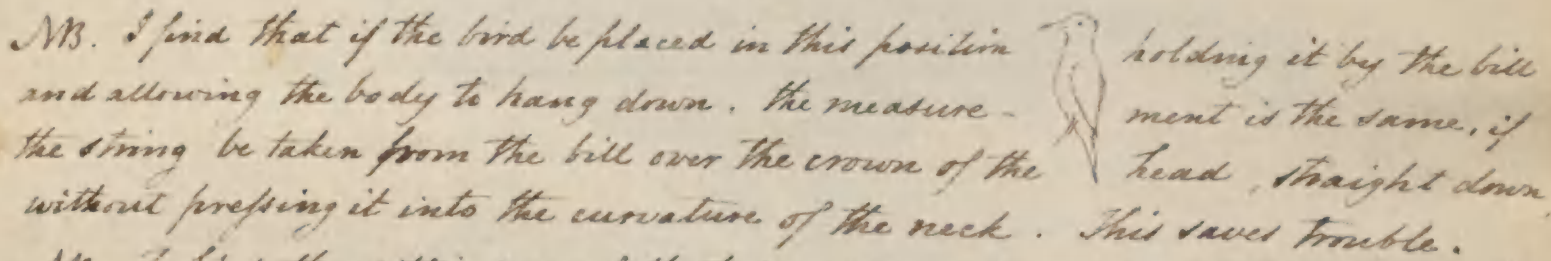 NB. I find that if the bird be placed in this position holding it by the bill
and allowing the body to hang down. the measure- ment is the same, if
the string be taken from the bill over the crown of the head, straight down,
without pressing it into the curvature of the neck. This saves trouble.